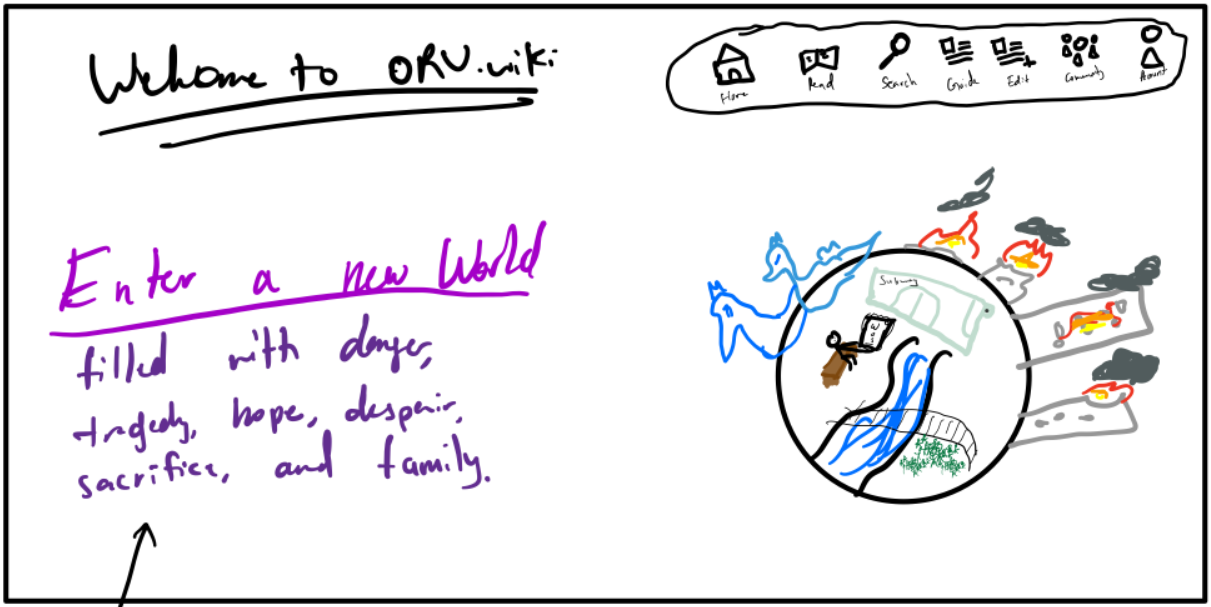 Welcome to ORV.wiki
Home Read Search Guide Edit Community Account
Enter a new World
filled with danger,
tragedy, hope, despair,
sacrifice, and family.
Subway